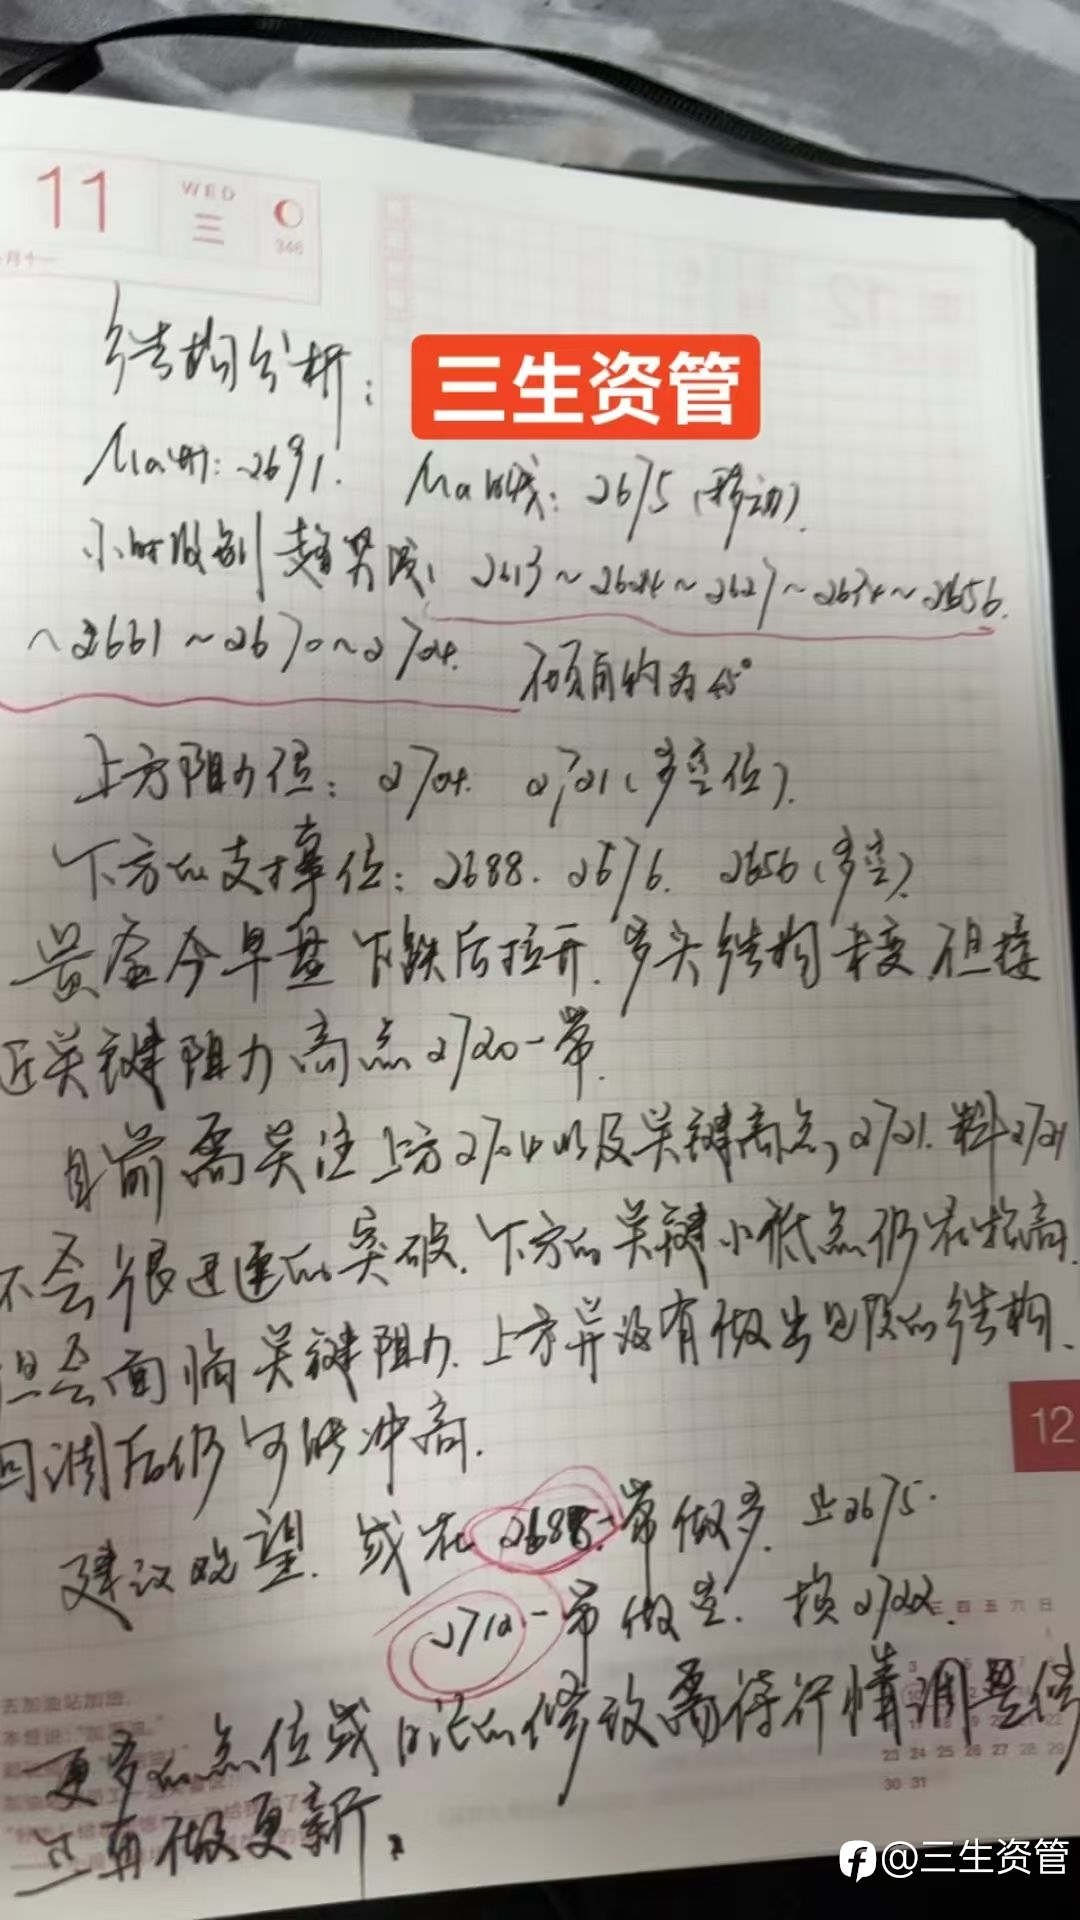 11
WED
三
346
月十一
结构分析:
三生资管
Ma时:2691. Ma日线:2675(移动).
小时级别趋势段:2613~2624~2627~2634~2656.
~2661~2670~2704. 倾角约为45°
上方阻力位:2704. 2721(多空位).
下方的支撑位:2688. 2676. 2656(多空).
黄金今早盘下跌后拉升.多头结构未变 但接
近关键阻力高点2720一带.
目前需关注上方2704以及关键高点,2721.料2721
不会很迅速的突破.下方的关键小低点仍在抬高.
但会面临关键阻力.上方并没有做出见顶的结构.
回调后仍可能冲高.
12
建议观望.或在2685一带做多.止2675.
2712一带做空.损2722.
三 四 五 六 日
去加油站加油,
更多的点位或日记的修改需待行情调整修
23 24 25 26 27 28 29
30 31
正再做更新.
@三生资管